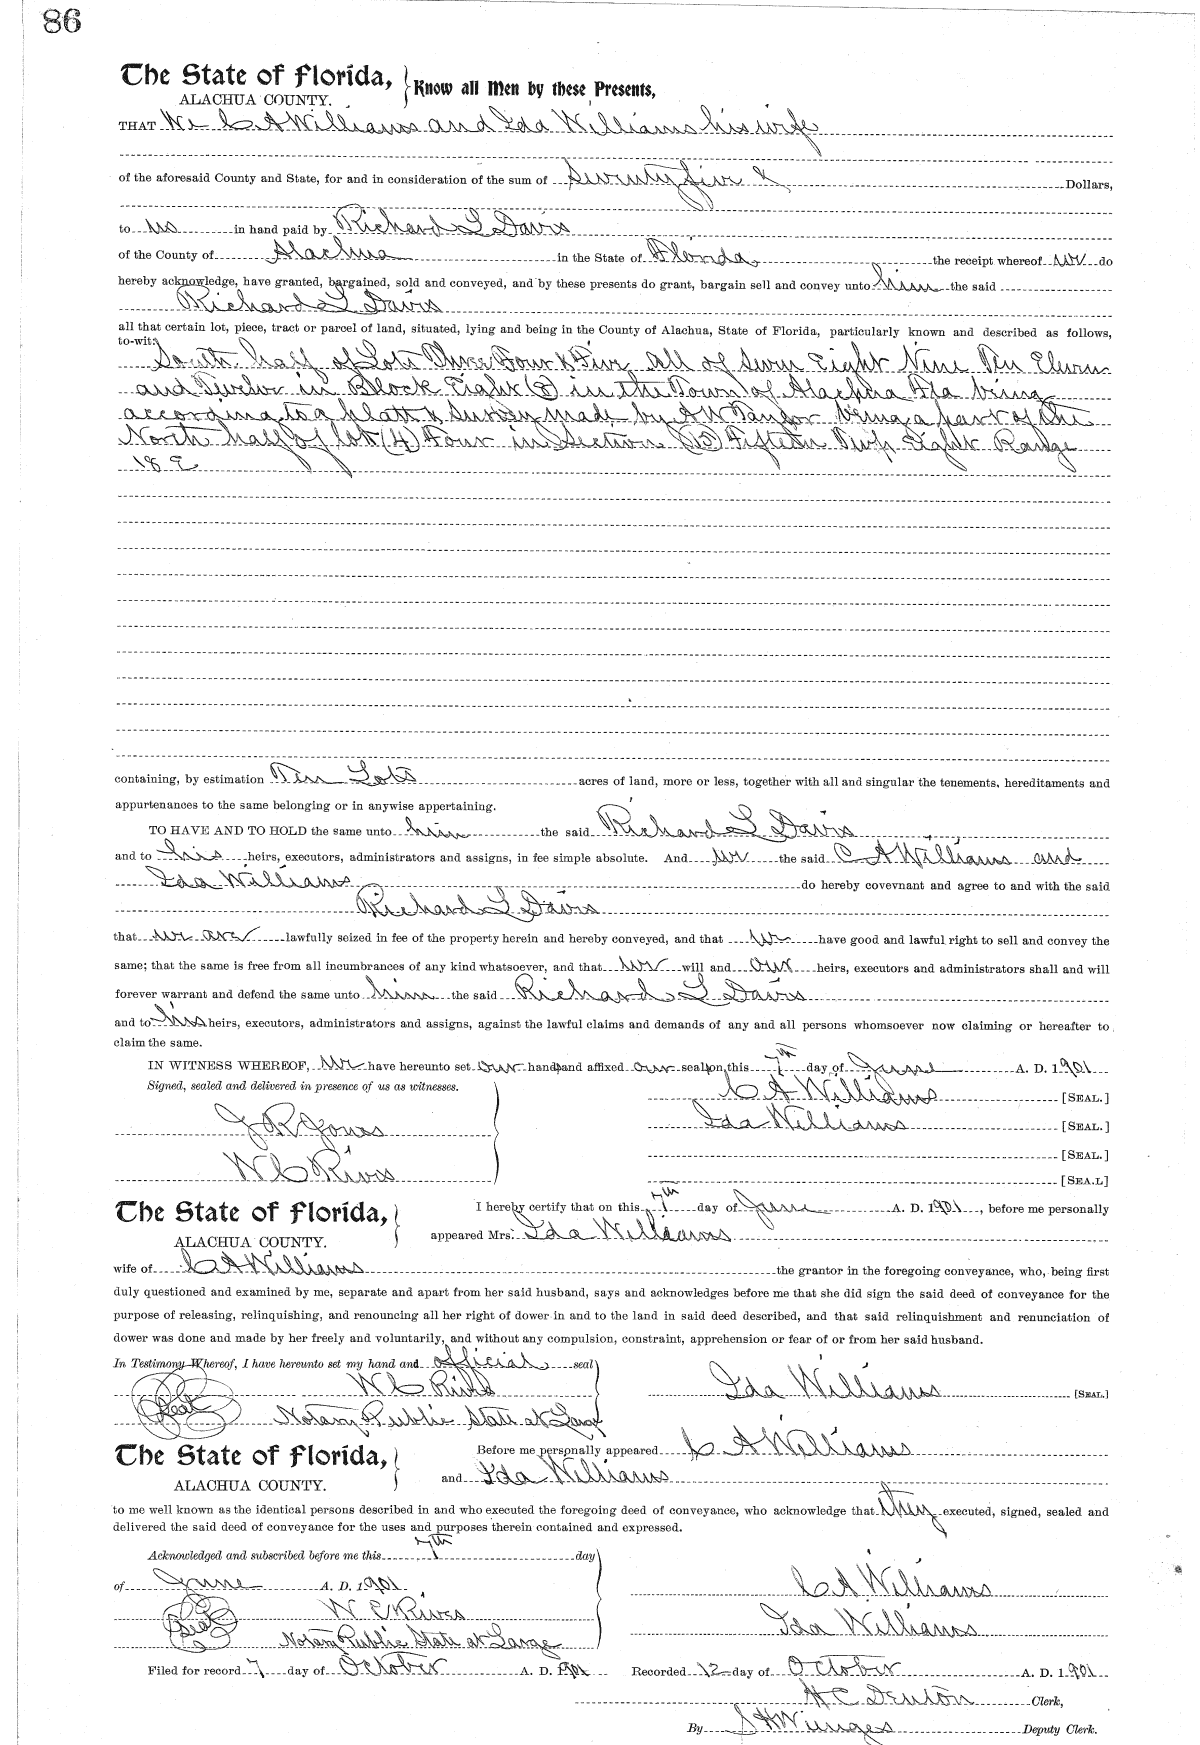 86
The State of Florida, } Know all Men by these Presents,
ALACHUA COUNTY.
THAT We C A Williams and Ida Williams his wife
of the aforesaid County and State, for and in consideration of the sum of Seventy five & Dollars,
to us in hand paid by Richard L Davis
of the County of Alachua in the State of Florida, the receipt whereof we do
hereby acknowledge, have granted, bargained, sold and conveyed, and by these presents do grant, bargain sell and convey unto him the said
Richard L Davis
all that certain lot, piece, tract or parcel of land, situated, lying and being in the County of Alachua, State of Florida, particularly known and described as follows,
to-wit:
South half of Lots Three Four & Five all of Seven Eight Nine Ten Eleven
and Twelve in Block Eight (8) in the Town of Alachua Fla being
according to a platt & Survey made by A W Taylor being a part of the
North half of lot (4) Four in Section (15) Fifteen Twp Eight Range
18 E
containing, by estimation Ten Lots acres of land, more or less, together with all and singular the tenements, hereditaments and
appurtenances to the same belonging or in anywise appertaining.
TO HAVE AND TO HOLD the same unto him the said Richard L Davis
and to his heirs, executors, administrators and assigns, in fee simple absolute. And we the said C A Williams and
Ida Williams do hereby covevnant and agree to and with the said
Richard L Davis
that we are lawfully seized in fee of the property herein and hereby conveyed, and that we have good and lawful right to sell and convey the
same; that the same is free from all incumbrances of any kind whatsoever, and that we will and our heirs, executors and administrators shall and will
forever warrant and defend the same unto him the said Richard L Davis
and to his heirs, executors, administrators and assigns, against the lawful claims and demands of any and all persons whomsoever now claiming or hereafter to
claim the same.
IN WITNESS WHEREOF, We have hereunto set our hands and affixed our seals on this 7th day of June A. D. 1901
Signed, sealed and delivered in presence of us as witnesses.
C A Williams [SEAL.]
J R Jones
Ida Williams [SEAL.]
[SEAL.]
W C Rives
[SEA.L]
The State of Florida, } I hereby certify that on this 7th day of June A. D. 1901, before me personally
ALACHUA COUNTY. appeared Mrs. Ida Williams
wife of C A Williams the grantor in the foregoing conveyance, who, being first
duly questioned and examined by me, separate and apart from her said husband, says and acknowledges before me that she did sign the said deed of conveyance for the
purpose of releasing, relinquishing, and renouncing all her right of dower in and to the land in said deed described, and that said relinquishment and renunciation of
dower was done and made by her freely and voluntarily, and without any compulsion, constraint, apprehension or fear of or from her said husband.
In Testimony Whereof, I have hereunto set my hand and official seal
Seal W C Rives Ida Williams [SEAL.]
Notary Public State at Large
The State of Florida, } Before me personally appeared C A Williams
ALACHUA COUNTY. and Ida Williams
to me well known as the identical persons described in and who executed the foregoing deed of conveyance, who acknowledge that they executed, signed, sealed and
delivered the said deed of conveyance for the uses and purposes therein contained and expressed.
Acknowledged and subscribed before me this 7th day
of June A. D. 1901 C A Williams
Seal W C Rives Ida Williams
Notary Public State at Large
Filed for record 7 day of October A. D. 1901 Recorded 12 day of October A. D. 1901
H C Denton Clerk,
By S H Wienges Deputy Clerk.